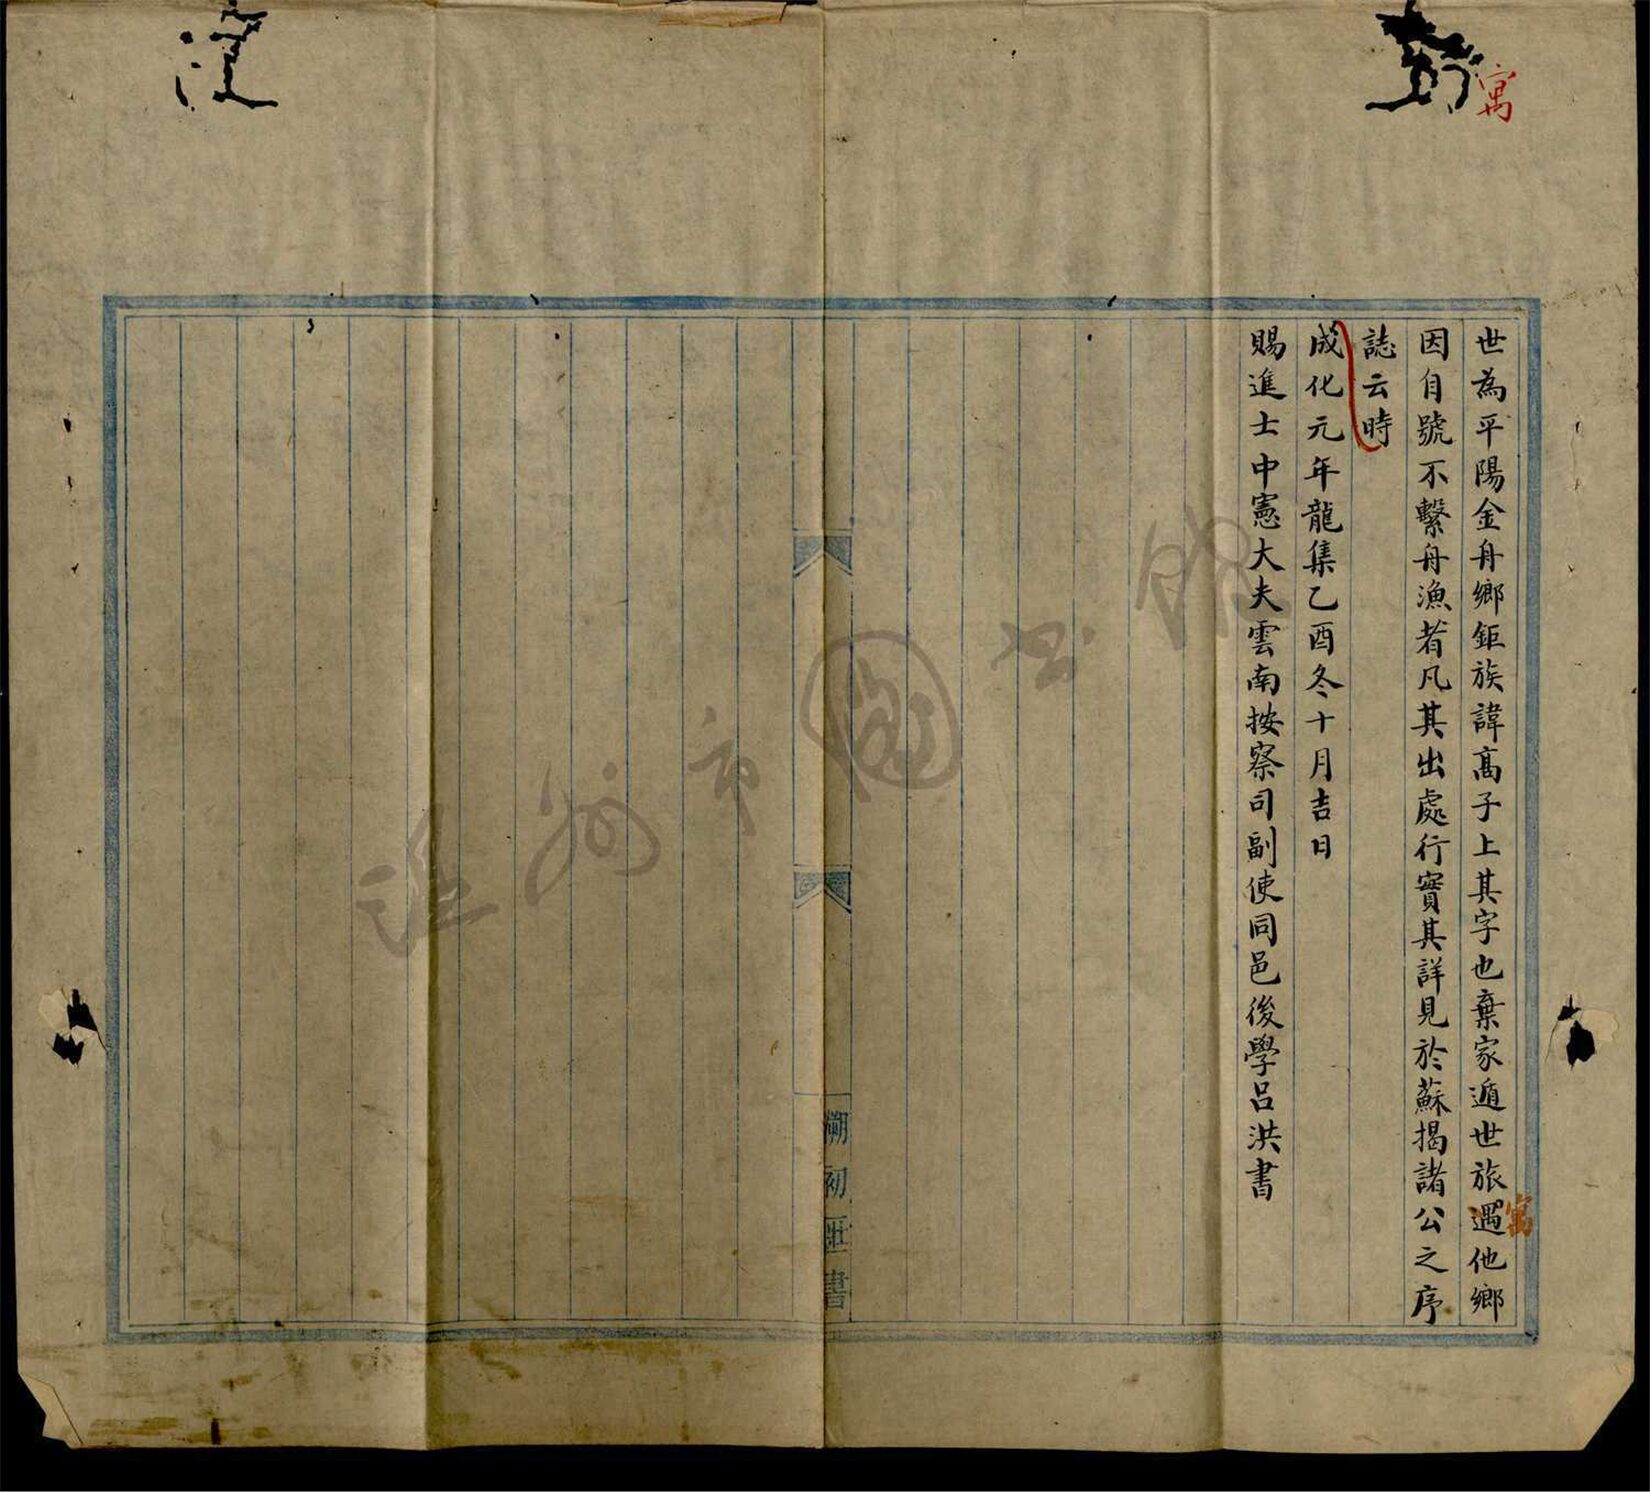 寓
世為平陽金舟鄉鉅族諱高子上其字也棄家遁世旅遇他鄉
寓
因自號不繫舟漁者凡其出處行實其詳見於蘇揭諸公之序
誌云時
成化元年龍集乙酉冬十月吉日
賜進士中憲大夫雲南按察司副使同邑後學呂洪書
溫州市圖書館